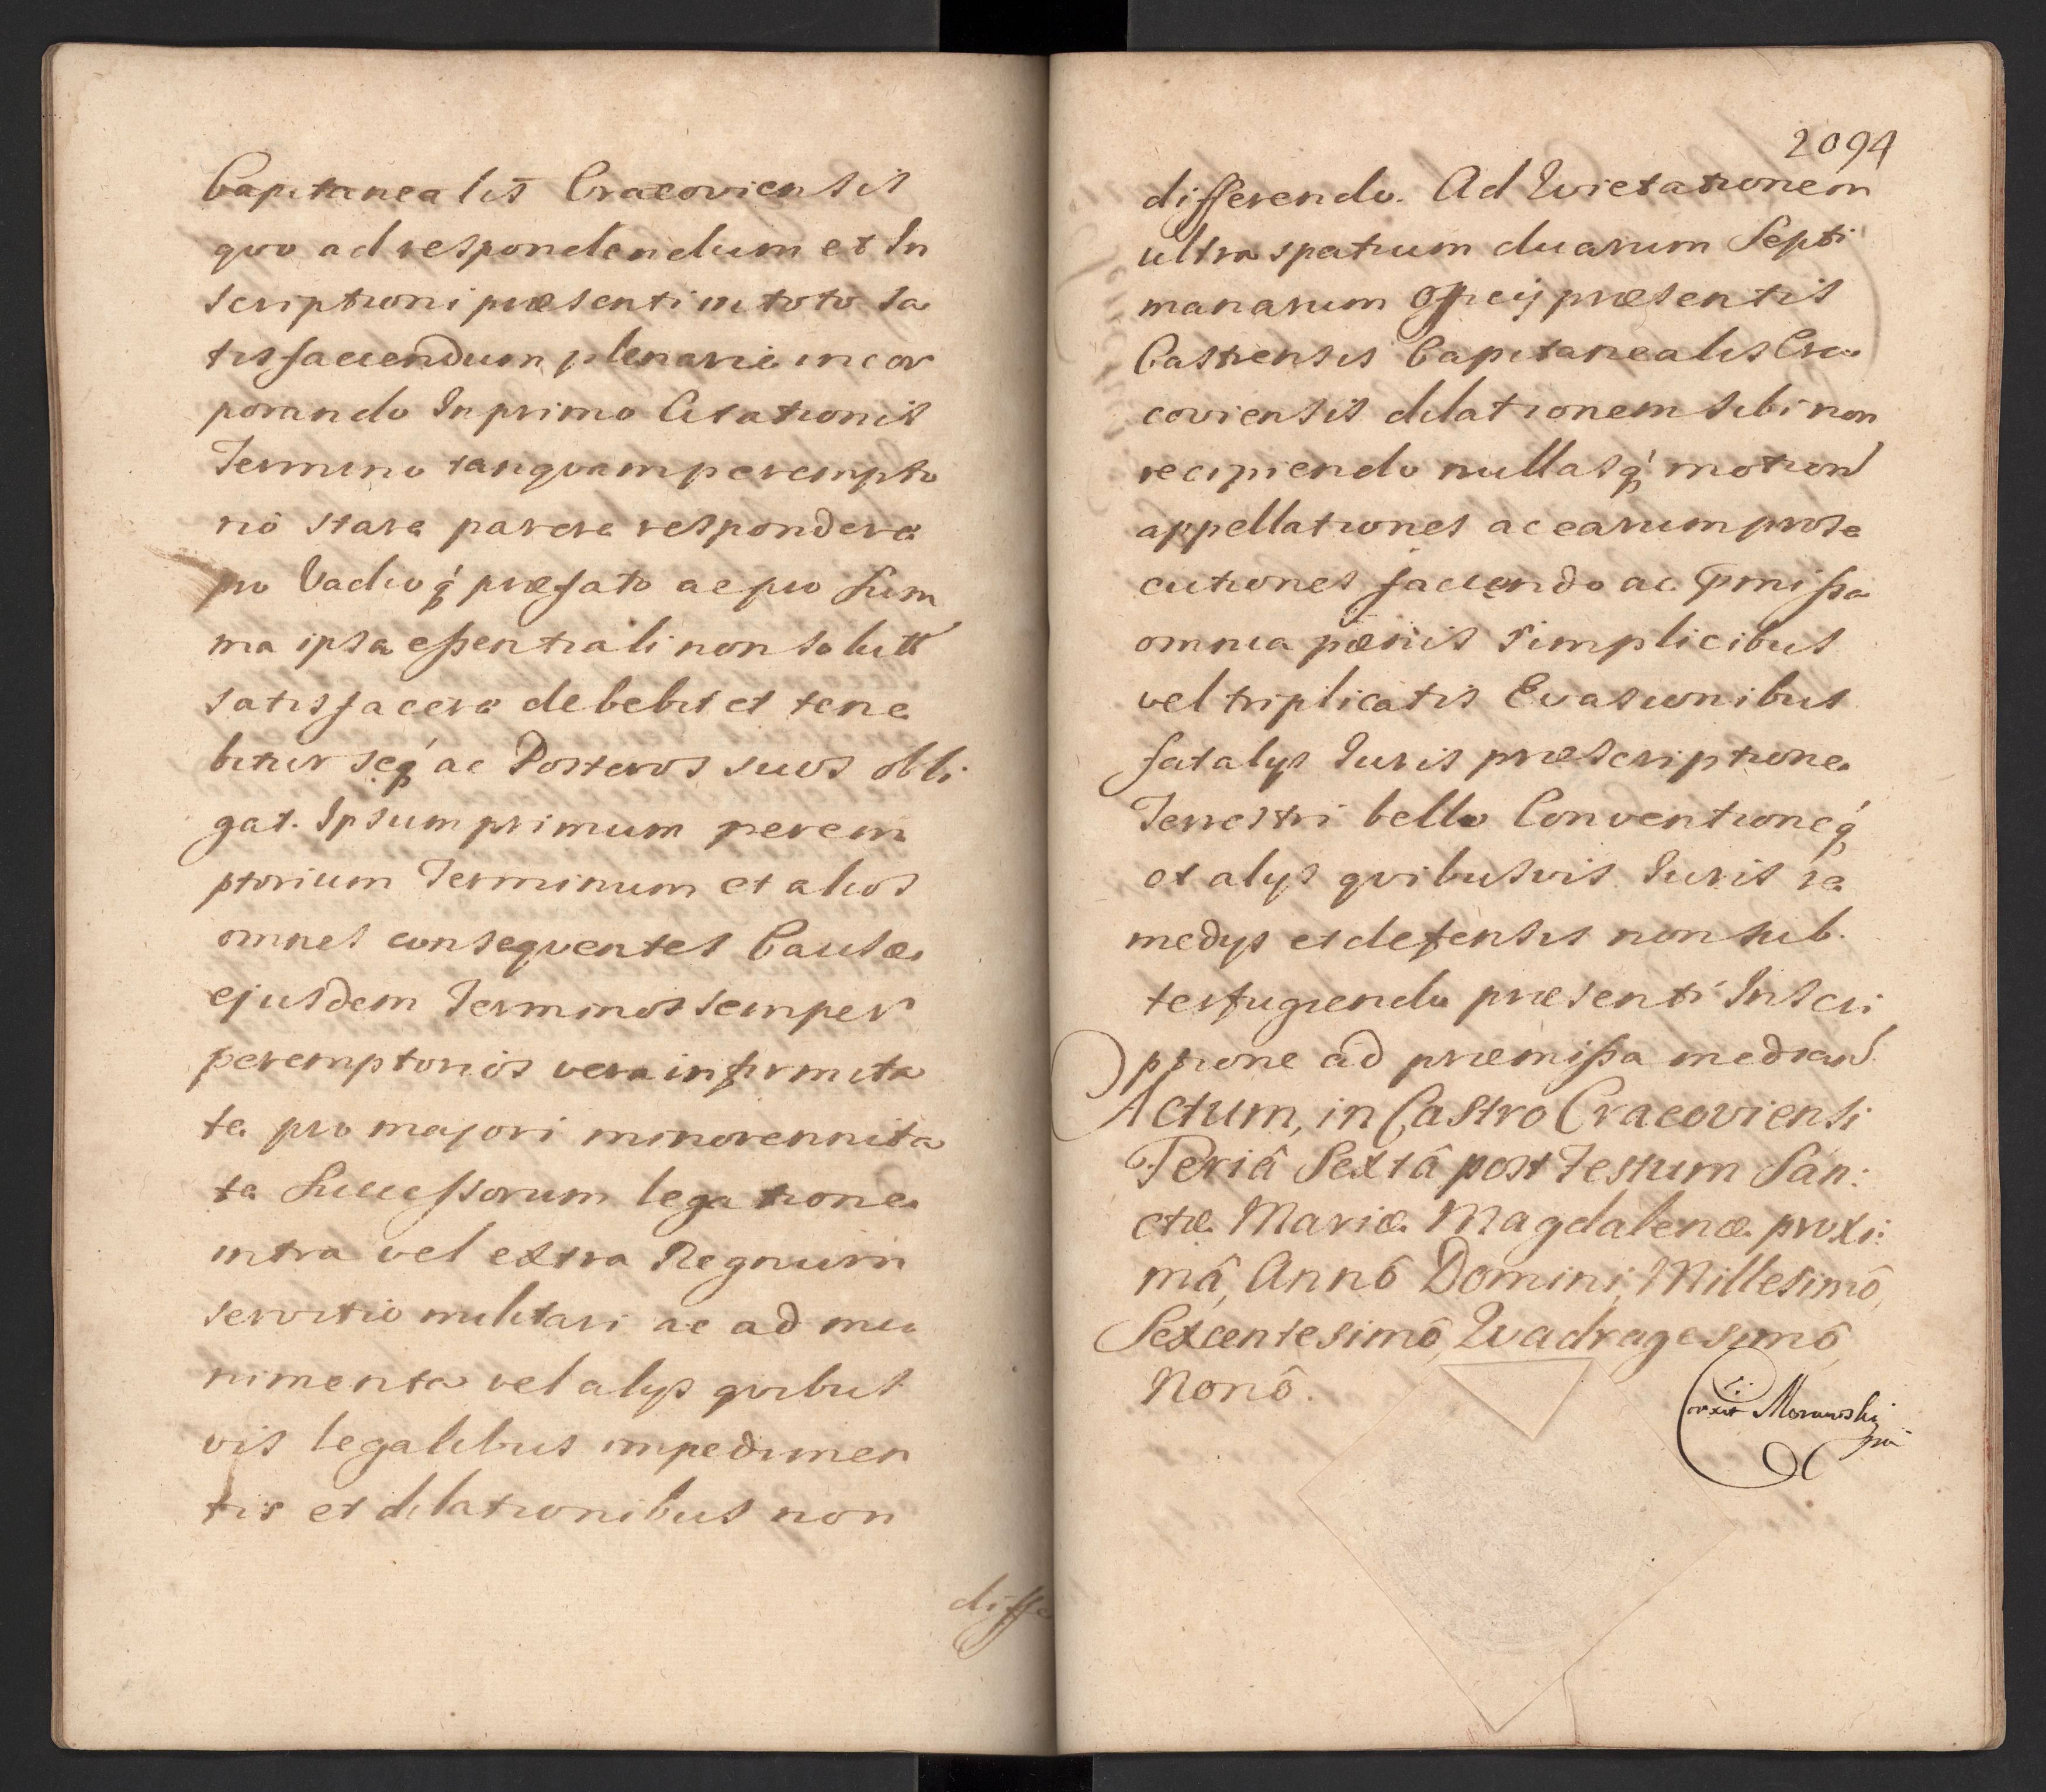 Capitanealis Cracoviensis
qvo ad respondendum et In
scriptioni præsenti in toto sa
tisfaciendum plenarie incor
porando In primo Citationis
Termino tanqvam perempto
riô stare parere respondere
pro Vadioq́ præfato ac pro Sum
ma ipsa eßentiali non solutt
satisfacere debebit et tene
bitur seq́ ac Posteros suos obli
gat. Ipsum primum perem
ptorium Terminum et alios
omnes conseqventes Causæ
ejusdem Terminos semper
peremptorios vera infirmita
te pro majori minorennita
te Successorum legatione
intra vel extra Regnum
servitio militari ac ad mu
nimenta vel alijs qvibus
vis legalibus impedimen
tis et dilationibus non
diffe
2094
differendo. Ad Qvietationem
ultra spatium duarum Septi
manarum Officij præsentis
Castrensis Capitanealis Cra
coviensis dilationem sibi non
recipiendo nullasq́ motion
appellationes ac earum prose
cutiones faciendo ac p̄mißa
omnia pænis simplicibus
vel triplicatis Evasionibus
fatalys Juris præscriptione
Terrestri bello Conventioneq́
et alys qvibusvis Juris re
medys et defensis non sub
terfugiendo præsenti Inscri
ptione ad præmißa median
Actum, in Castro Cracoviensi
Feriâ Sextâ post Festum San:
ctæ Mariæ Magdalenæ proxi:
mâ, Annô Domini, Millesimô,
Sexcentesimô, Qvadragesimô,
Nonô.
Corrxit Morawski